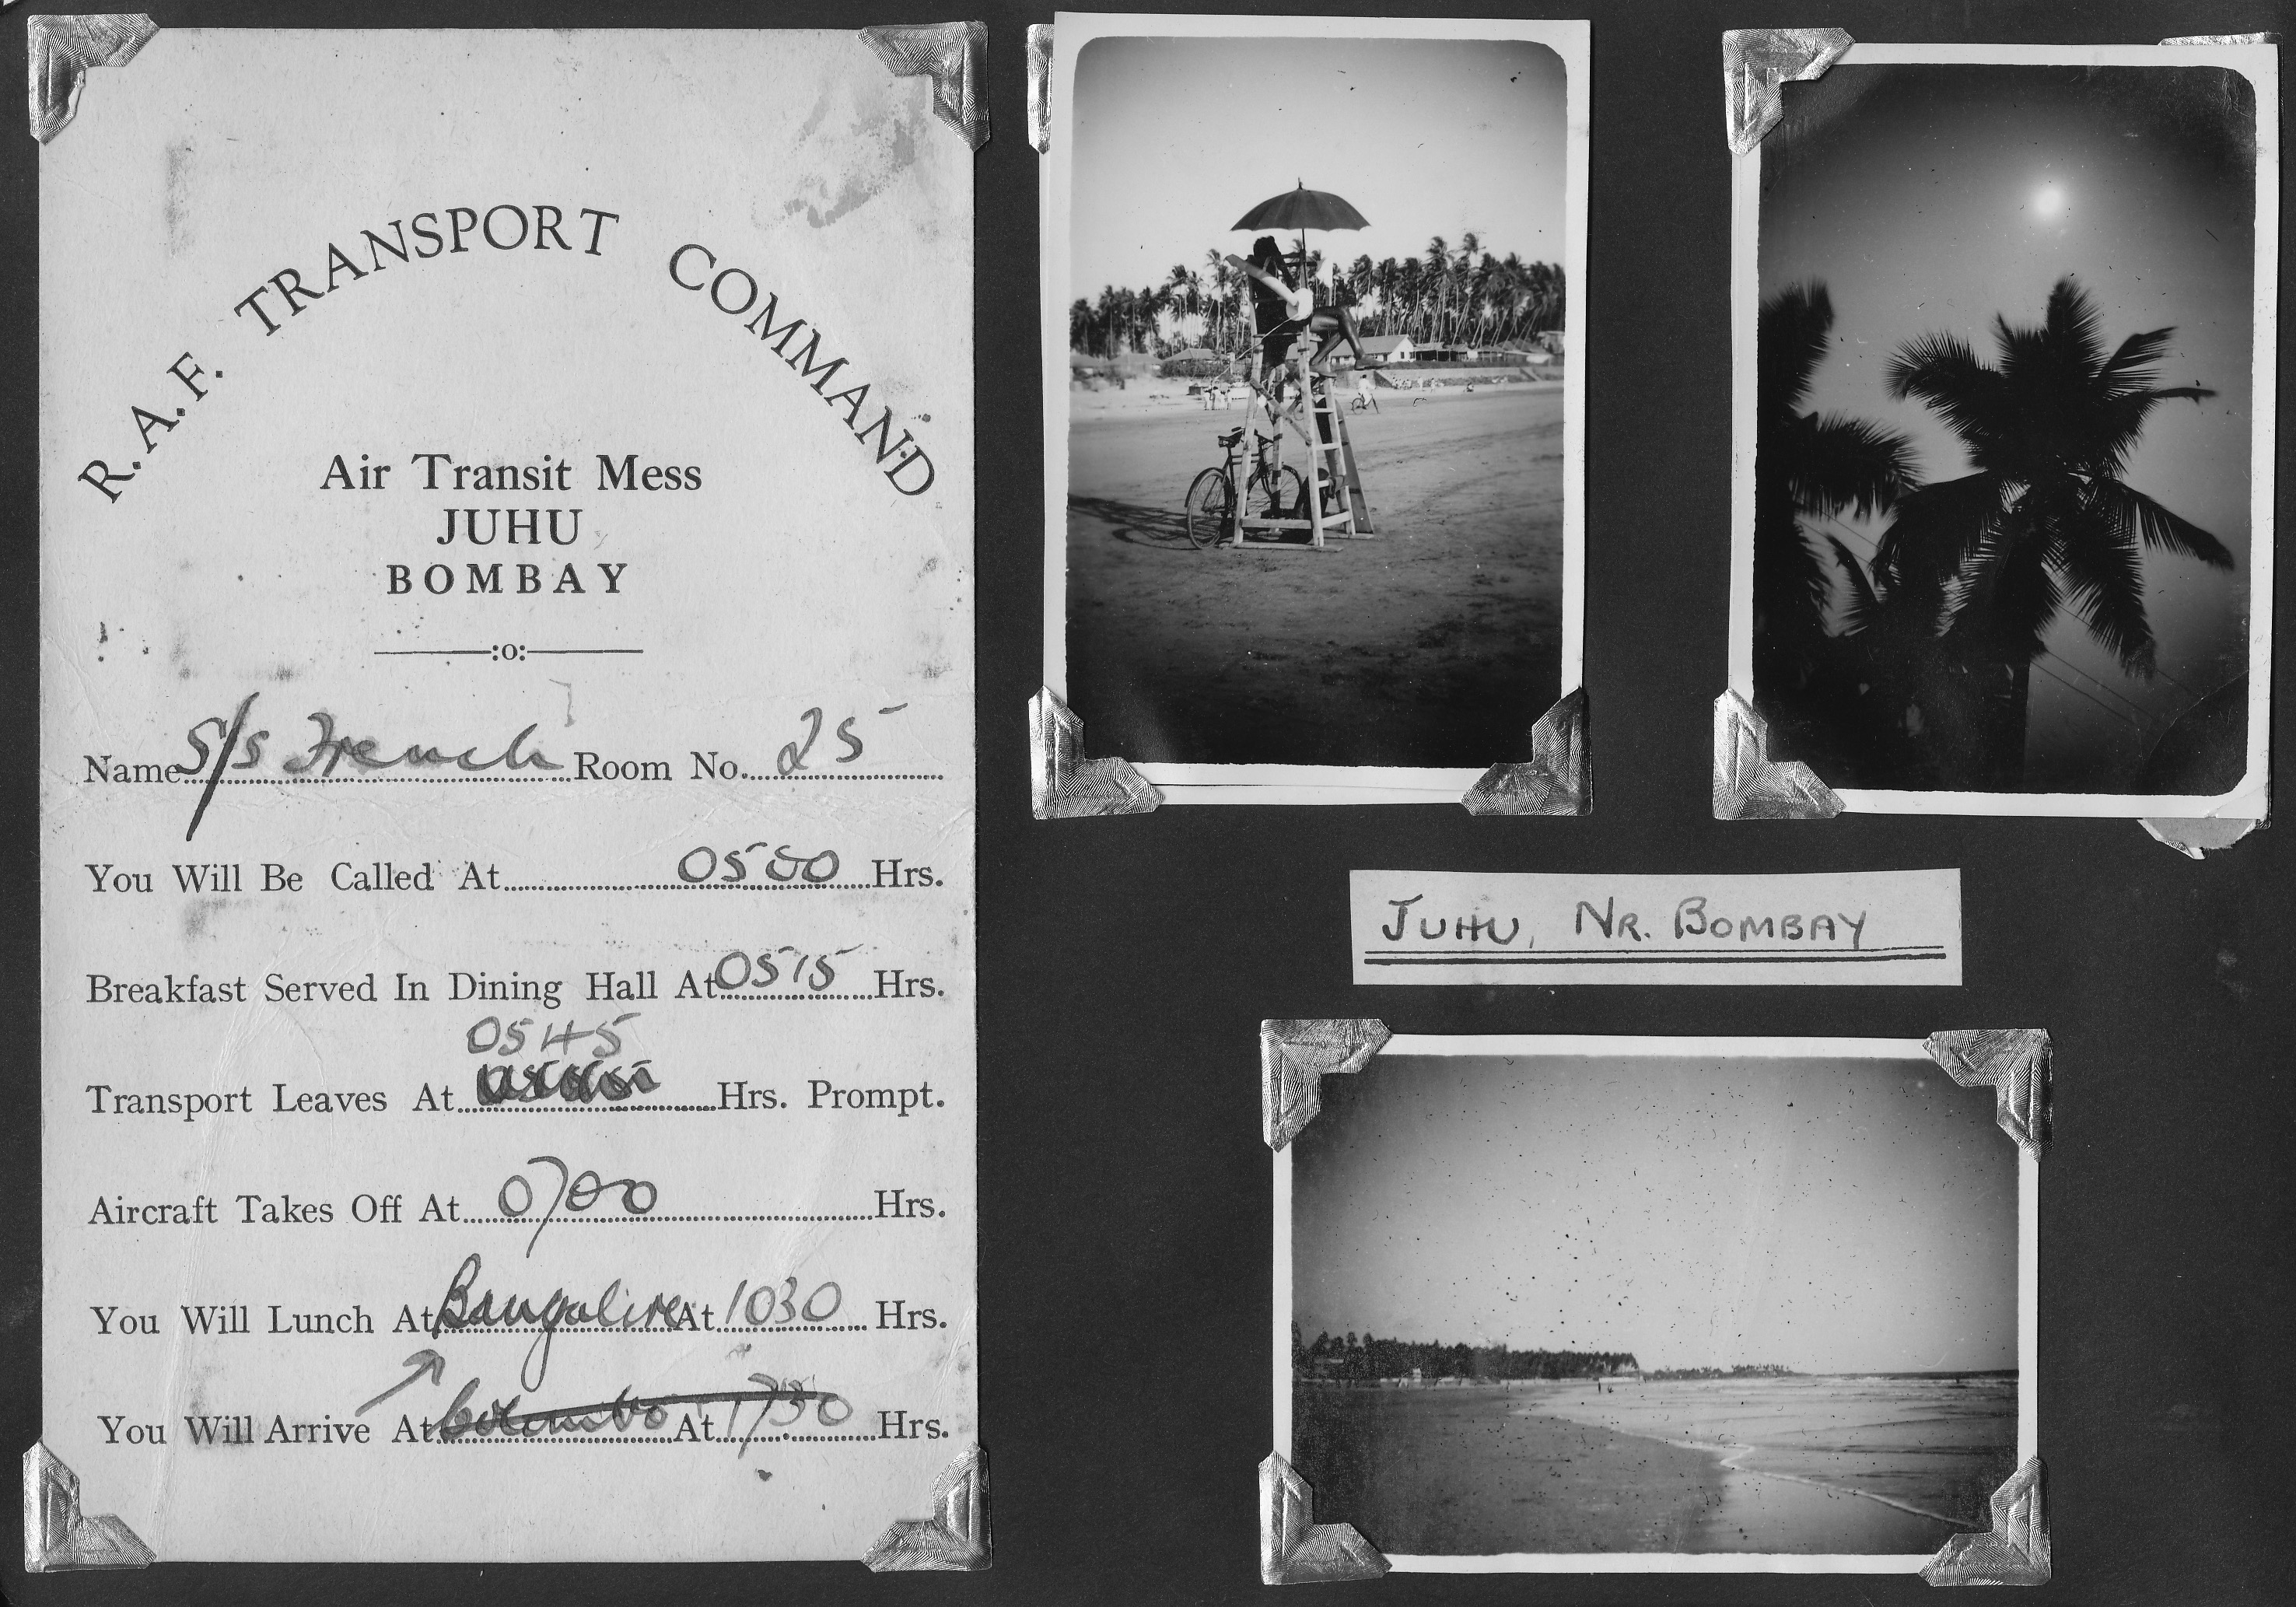 R.A.F. TRANSPORT COMMAND
Air Transit Mess
JUHU
BOMBAY
:o:
Name S/s French Room No. 25
You Will Be Called At 0500 Hrs.
Breakfast Served In Dining Hall At 0515 Hrs.
0545
Transport Leaves At Hrs. Prompt.
Aircraft Takes Off At 0700 Hrs.
You Will Lunch At Bangalore At 1030 Hrs.
You Will Arrive At Colombo At 1730 Hrs.
JUHU, NR. BOMBAY